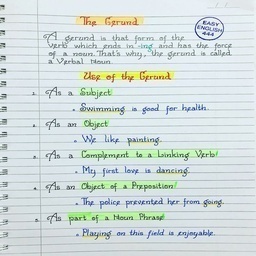 The Gerund
EASY
ENGLISH
444
A gerund is that form of the
verb which ends in -ing and has the force
of a noun. That's why, the gerund is called
a Verbal Noun
Use of the Gerund
1. As a Subject
• Swimming is good for health.
2. As an Object
• We like painting.
3. As a Complement to a Linking Verb
• My first love is dancing.
4. As an Object of a Preposition
• The police prevented her from going.
5. As part of a Noun Phrase
• Playing on this field is enjoyable.